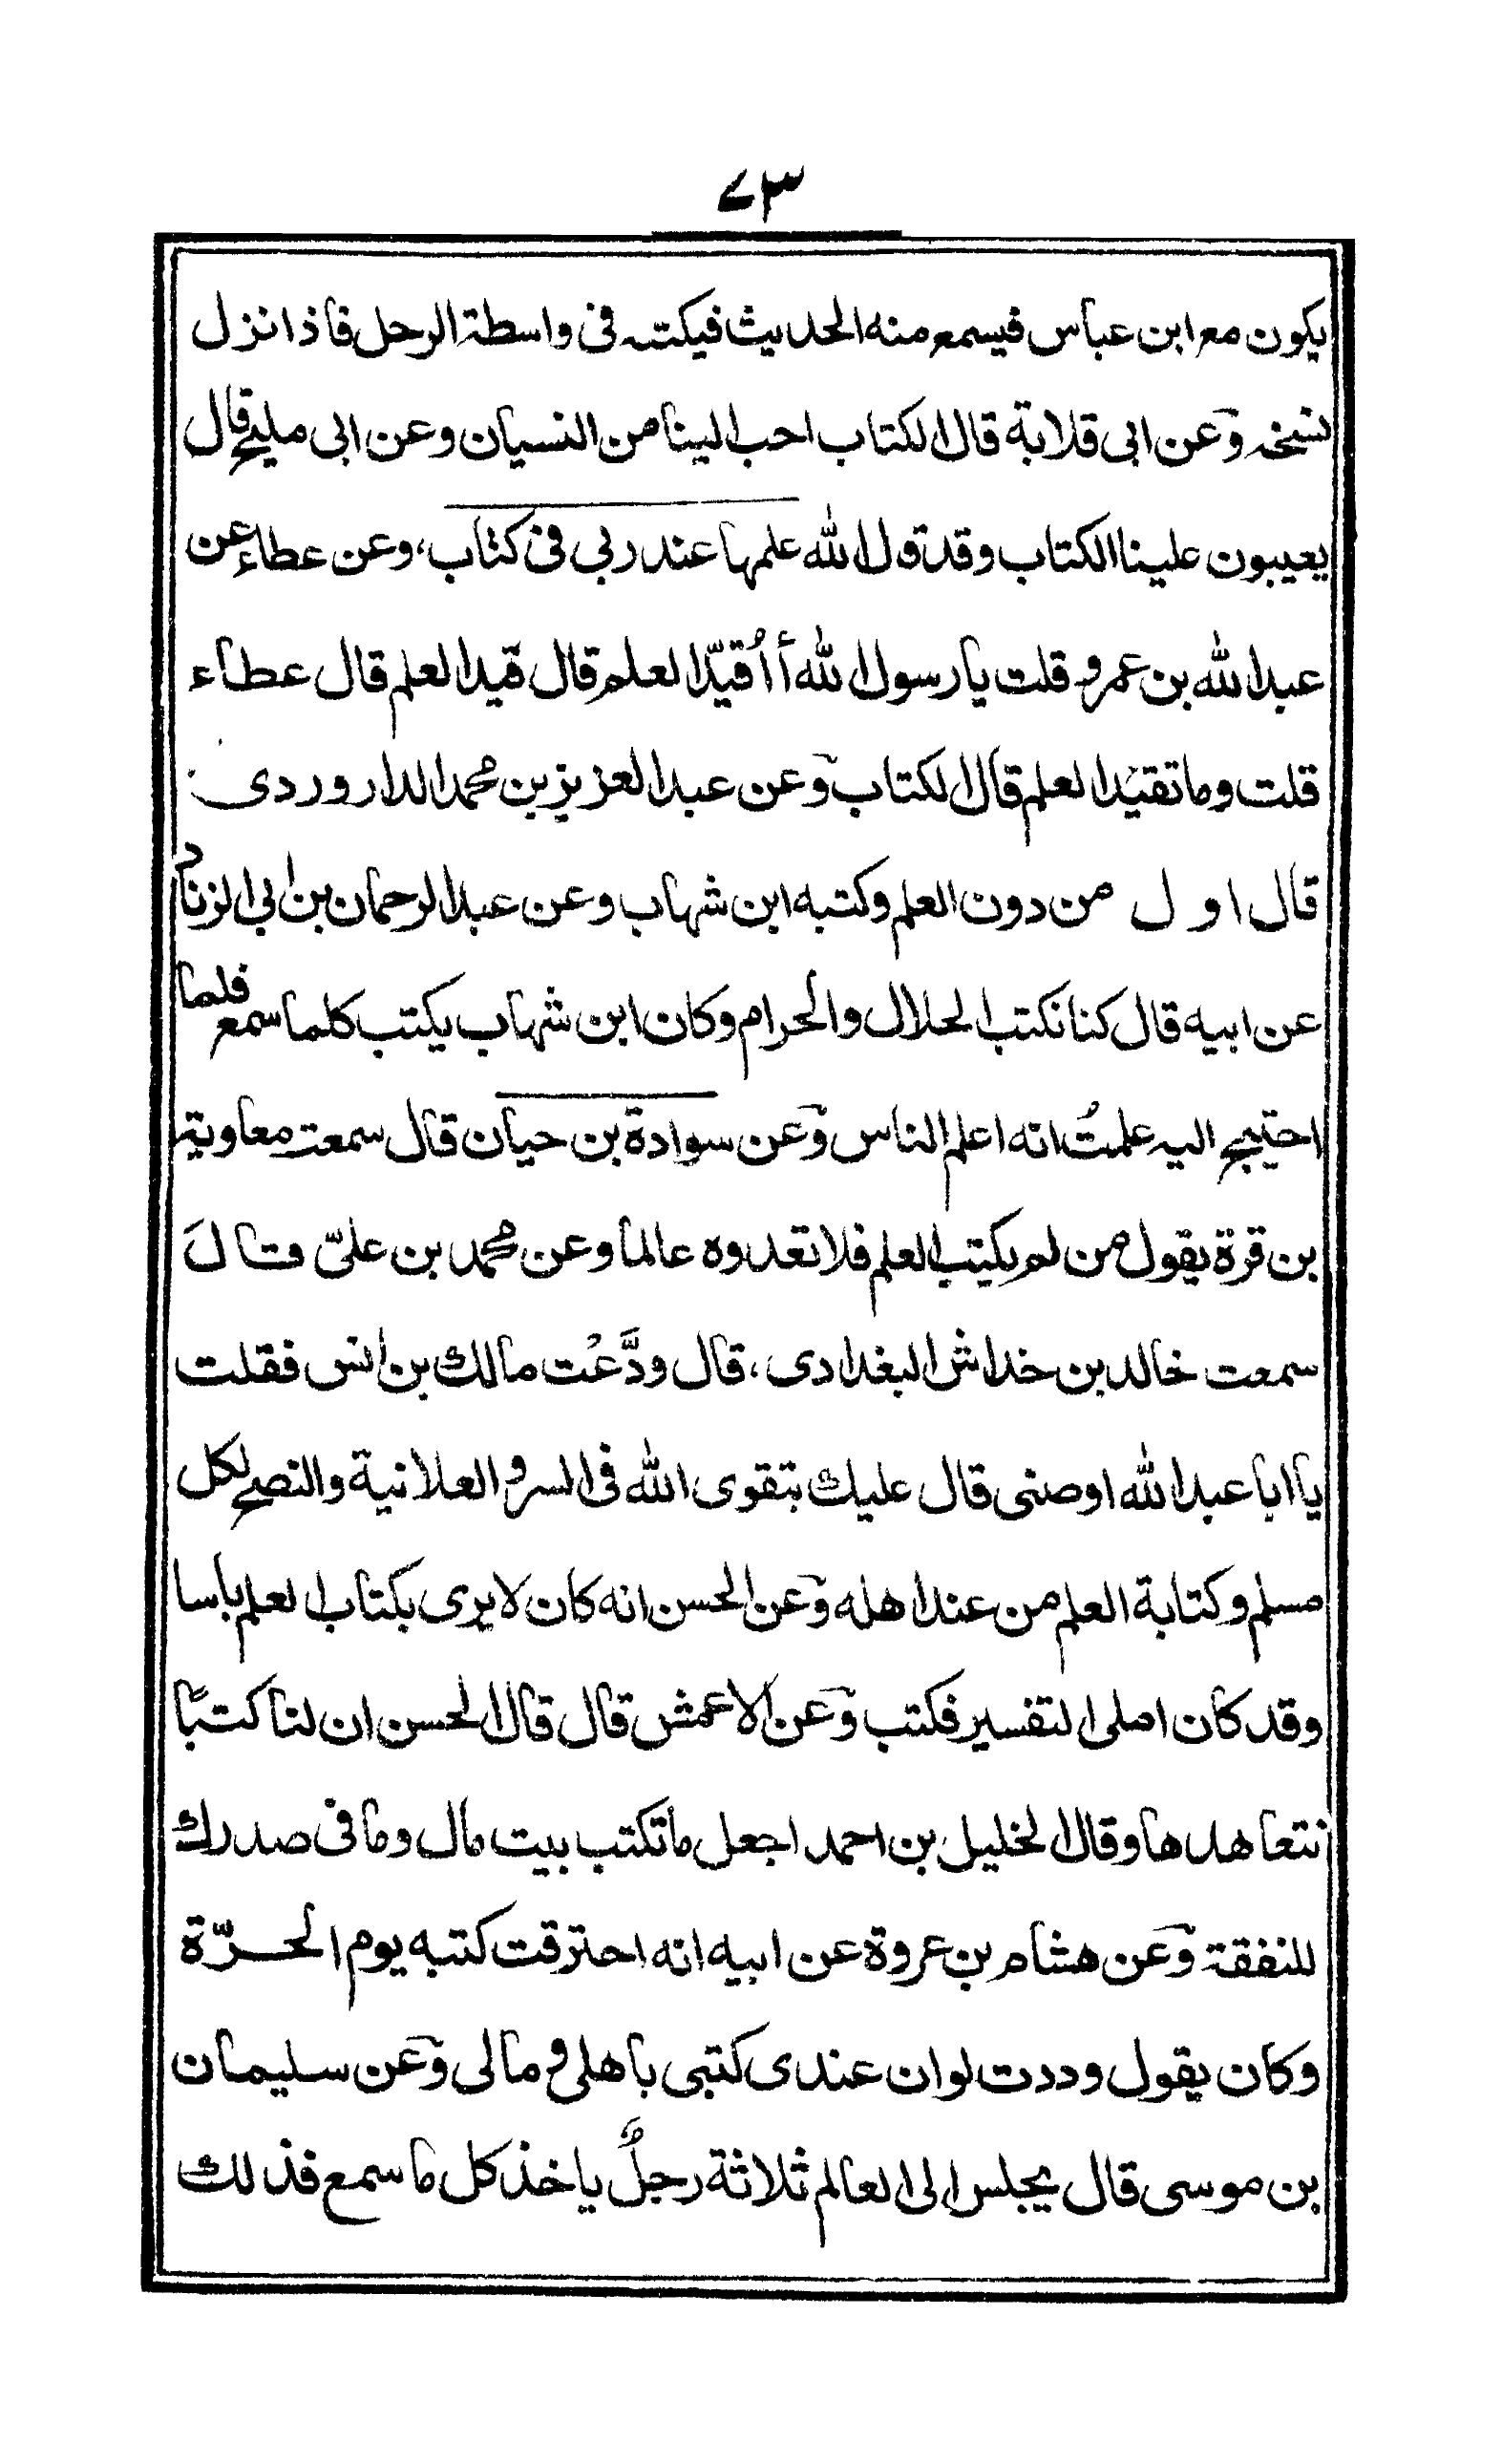 ٧٣
يكون مع ابن عباس فيسمع منه الحديث فيكتبه فى واسطة الرحل فاذا نزل
نسخه وعن ابى قلابة قال الكتاب احب الينا من النسيان وعن ابى مليح قال
يعيبون علينا الكتاب وقد قال الله علمها عند ربي فى كتاب، وعن عطاء عن
عبد الله بن عمرو قلت يا رسول الله أأُقيّد العلم قال قيد العلم قال عطاء
قلت وما تقييد العلم قال الكتاب وعن عبد العزيز بن محمد الداروردى
قال اول من دون العلم وكتبه ابن شهاب وعن عبد الرحمان بن ابي الزناد
عن ابيه قال كنا نكتب الحلال والحرام وكان ابن شهاب يكتب كلما سمع فلما
احتيج اليه علمتُ انه اعلم الناس وعن سوادة بن حيان قال سمعت معاوية
بن قرة يقول من لم يكتب العلم فلا تعدوه عالما وعن محمد بن علىّ قال
سمعت خالد بن خداش البغدادى، قال ودَّعْت مالك بن انس فقلت
يا ابا عبد الله اوصنى قال عليك بتقوى الله فى السر و العلانية والنصح لكل
مسلم وكتابة العلم من عند اهله وعن الحسن انه كان لا يرى بكتاب العلم باسا
وقد كان املى التفسير فكتب وعن الاعمش قال قال الحسن ان لنا كتبًا
نتعاهدها وقال الخليل بن احمد اجعل ما تكتب بيت مال وما فى صدرك
للنفقة وعن هشام بن عروة عن ابيه انه احترقت كتبه يوم الحرّة
وكان يقول وددت لو ان عندى كتبى باهلى و مالى وعن سليمان
بن موسى قال يجلس الى العالم ثلاثة رجلٌ ياخذ كل ما سمع فذلك